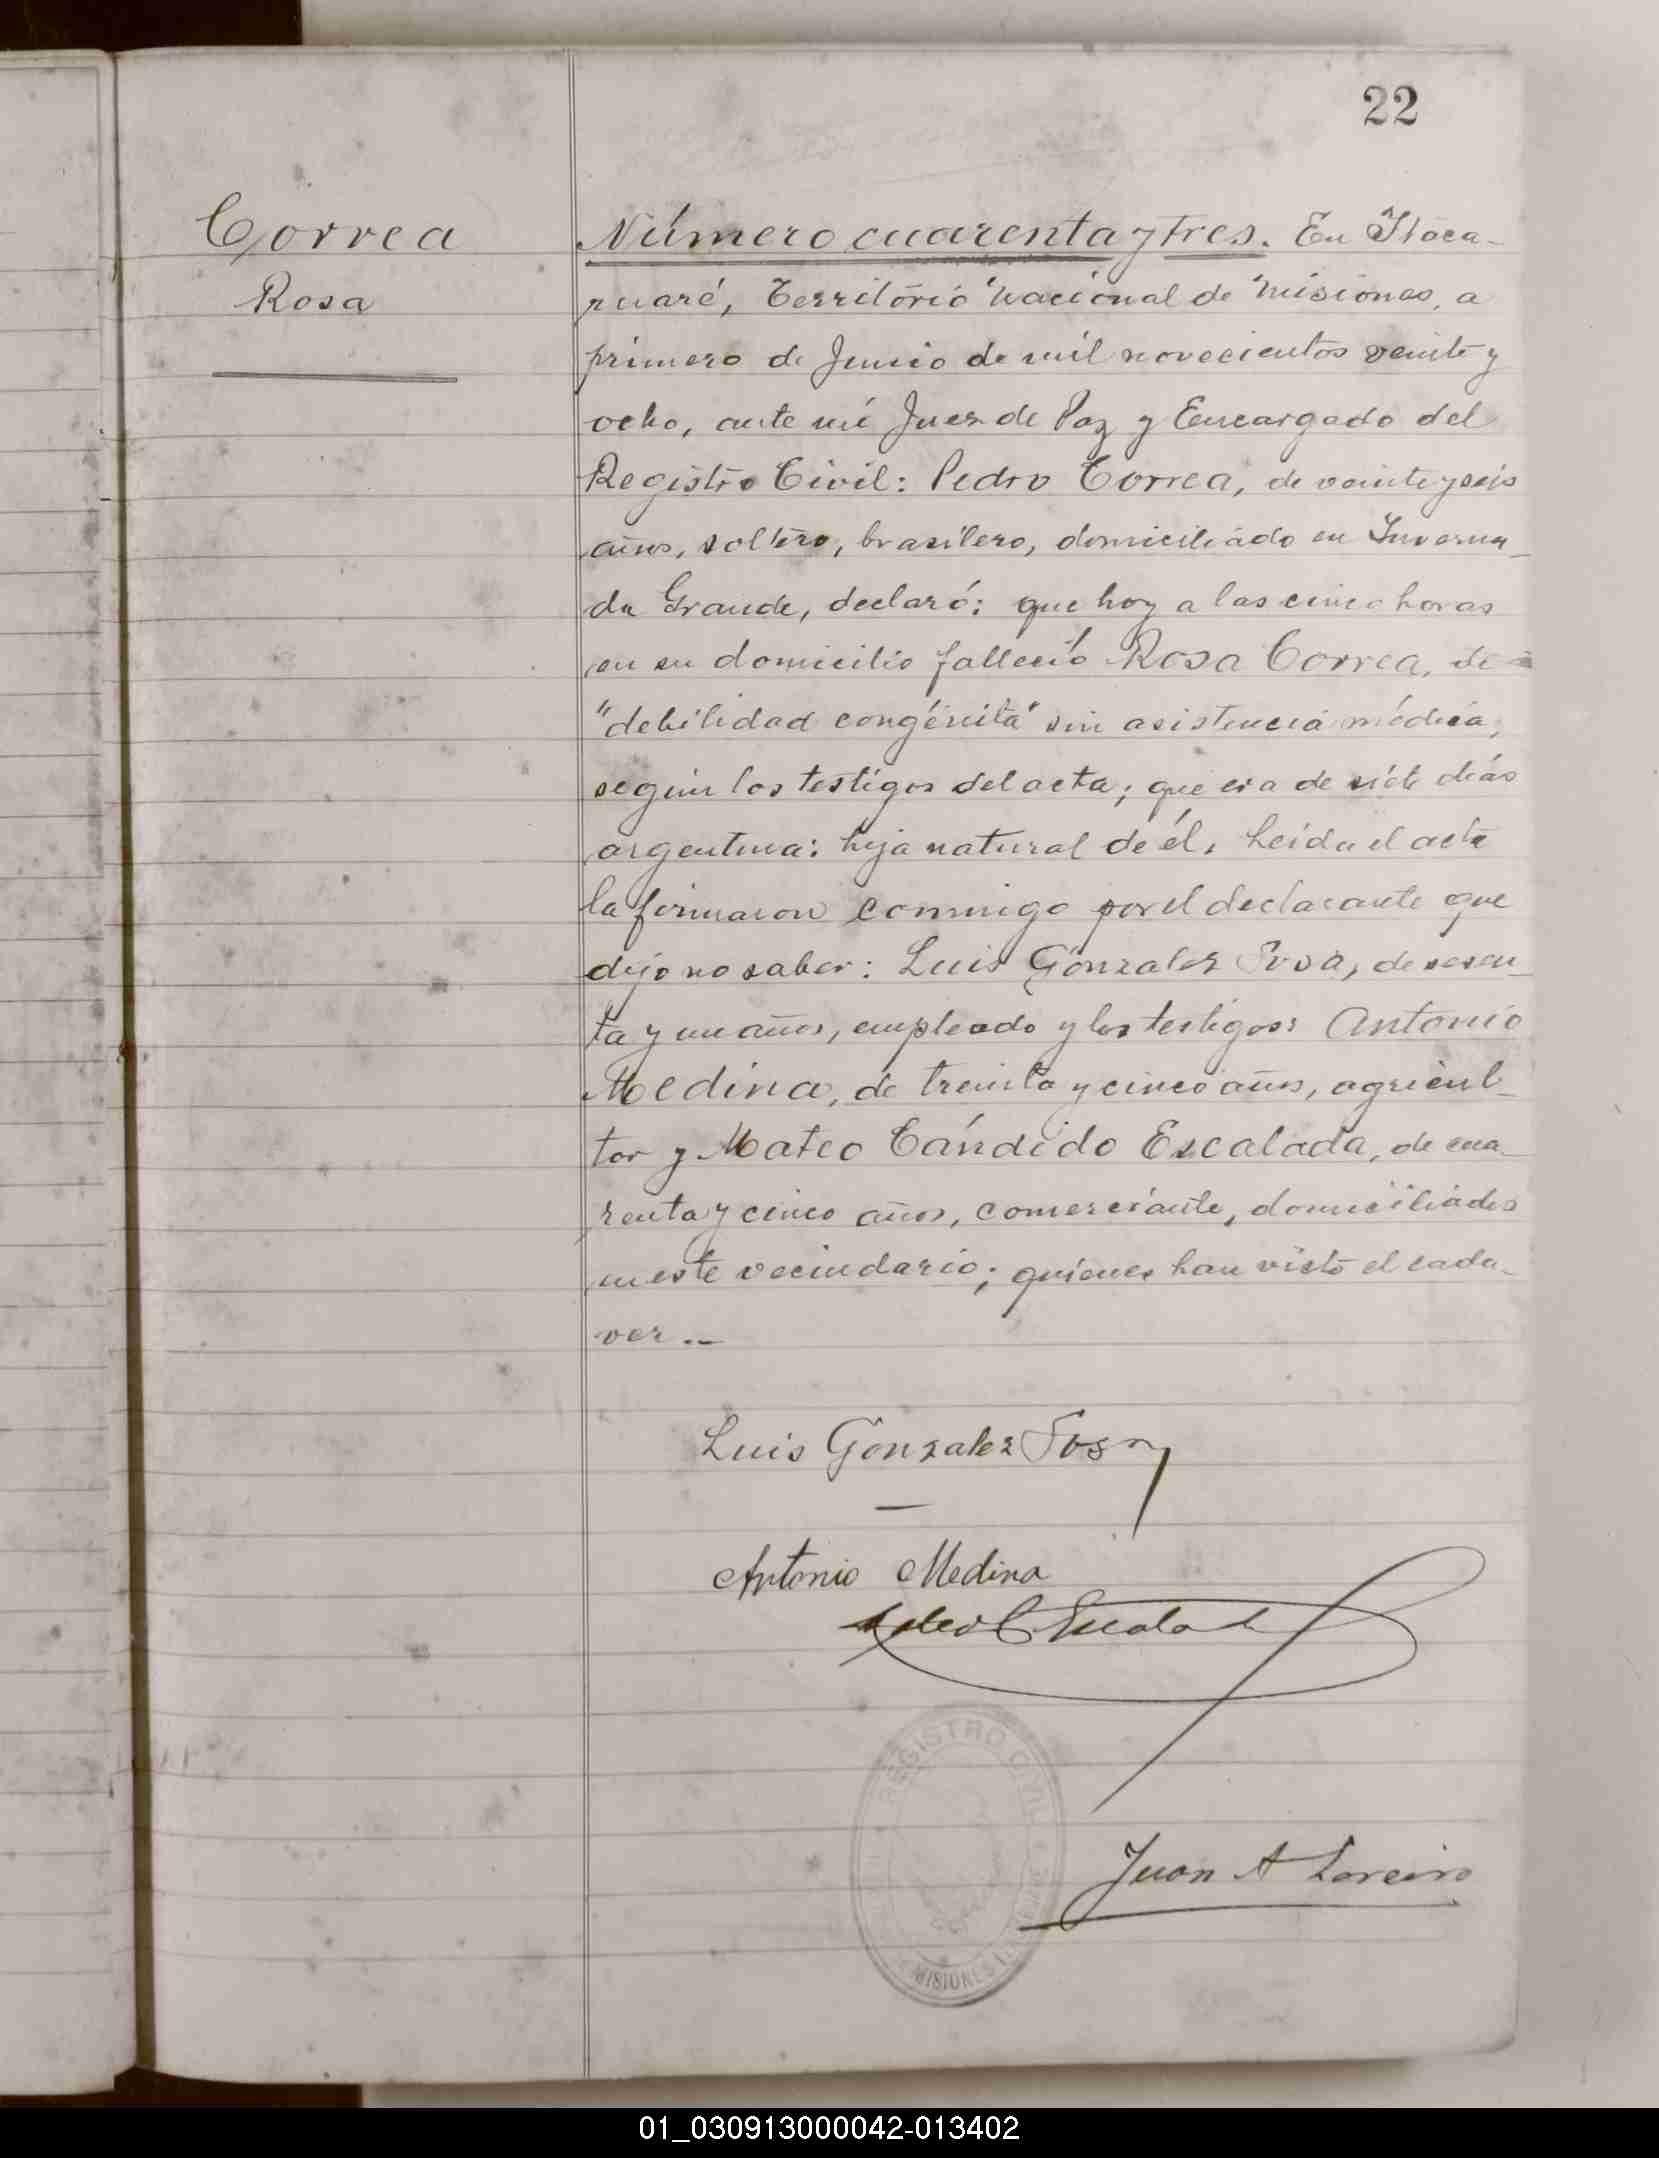 22
Correa
Rosa
Número cuarenta y tres. En Itaca-
ruaré, Territorio Nacional de Misiones, a
primero de Junio de mil novecientos veinte y
ocho, ante mí Juez de Paz y Encargado del
Registro Civil: Pedro Correa, de veinte y seis
años, soltero, brasilero, domiciliado en Inverna-
da Grande, declaró: que hoy a las cinco horas
en su domicilio falleció Rosa Correa, de
"debilidad congénita" sin asistencia médica,
según los testigos del acta; que era de siete días
argentina: hija natural de él. Leida el acta
la firmaron conmigo por el declarante que
dijo no saber: Luis Gonzalez Sosa, de sesen-
ta y un años, empleado y los testigos: Antonio
Medina, de treinta y cinco años, agricul-
tor y Mateo Cándido Escalada, de cua-
renta y cinco años, comerciante, domiciliados
en este vecindario; quienes han visto el cada-
ver.-
Luis Gonzalez Sosa
Antonio Medina
Mateo C Escalada
REGISTRO CIVIL
MISIONES
Juan A Loreiro
01_030913000042-013402